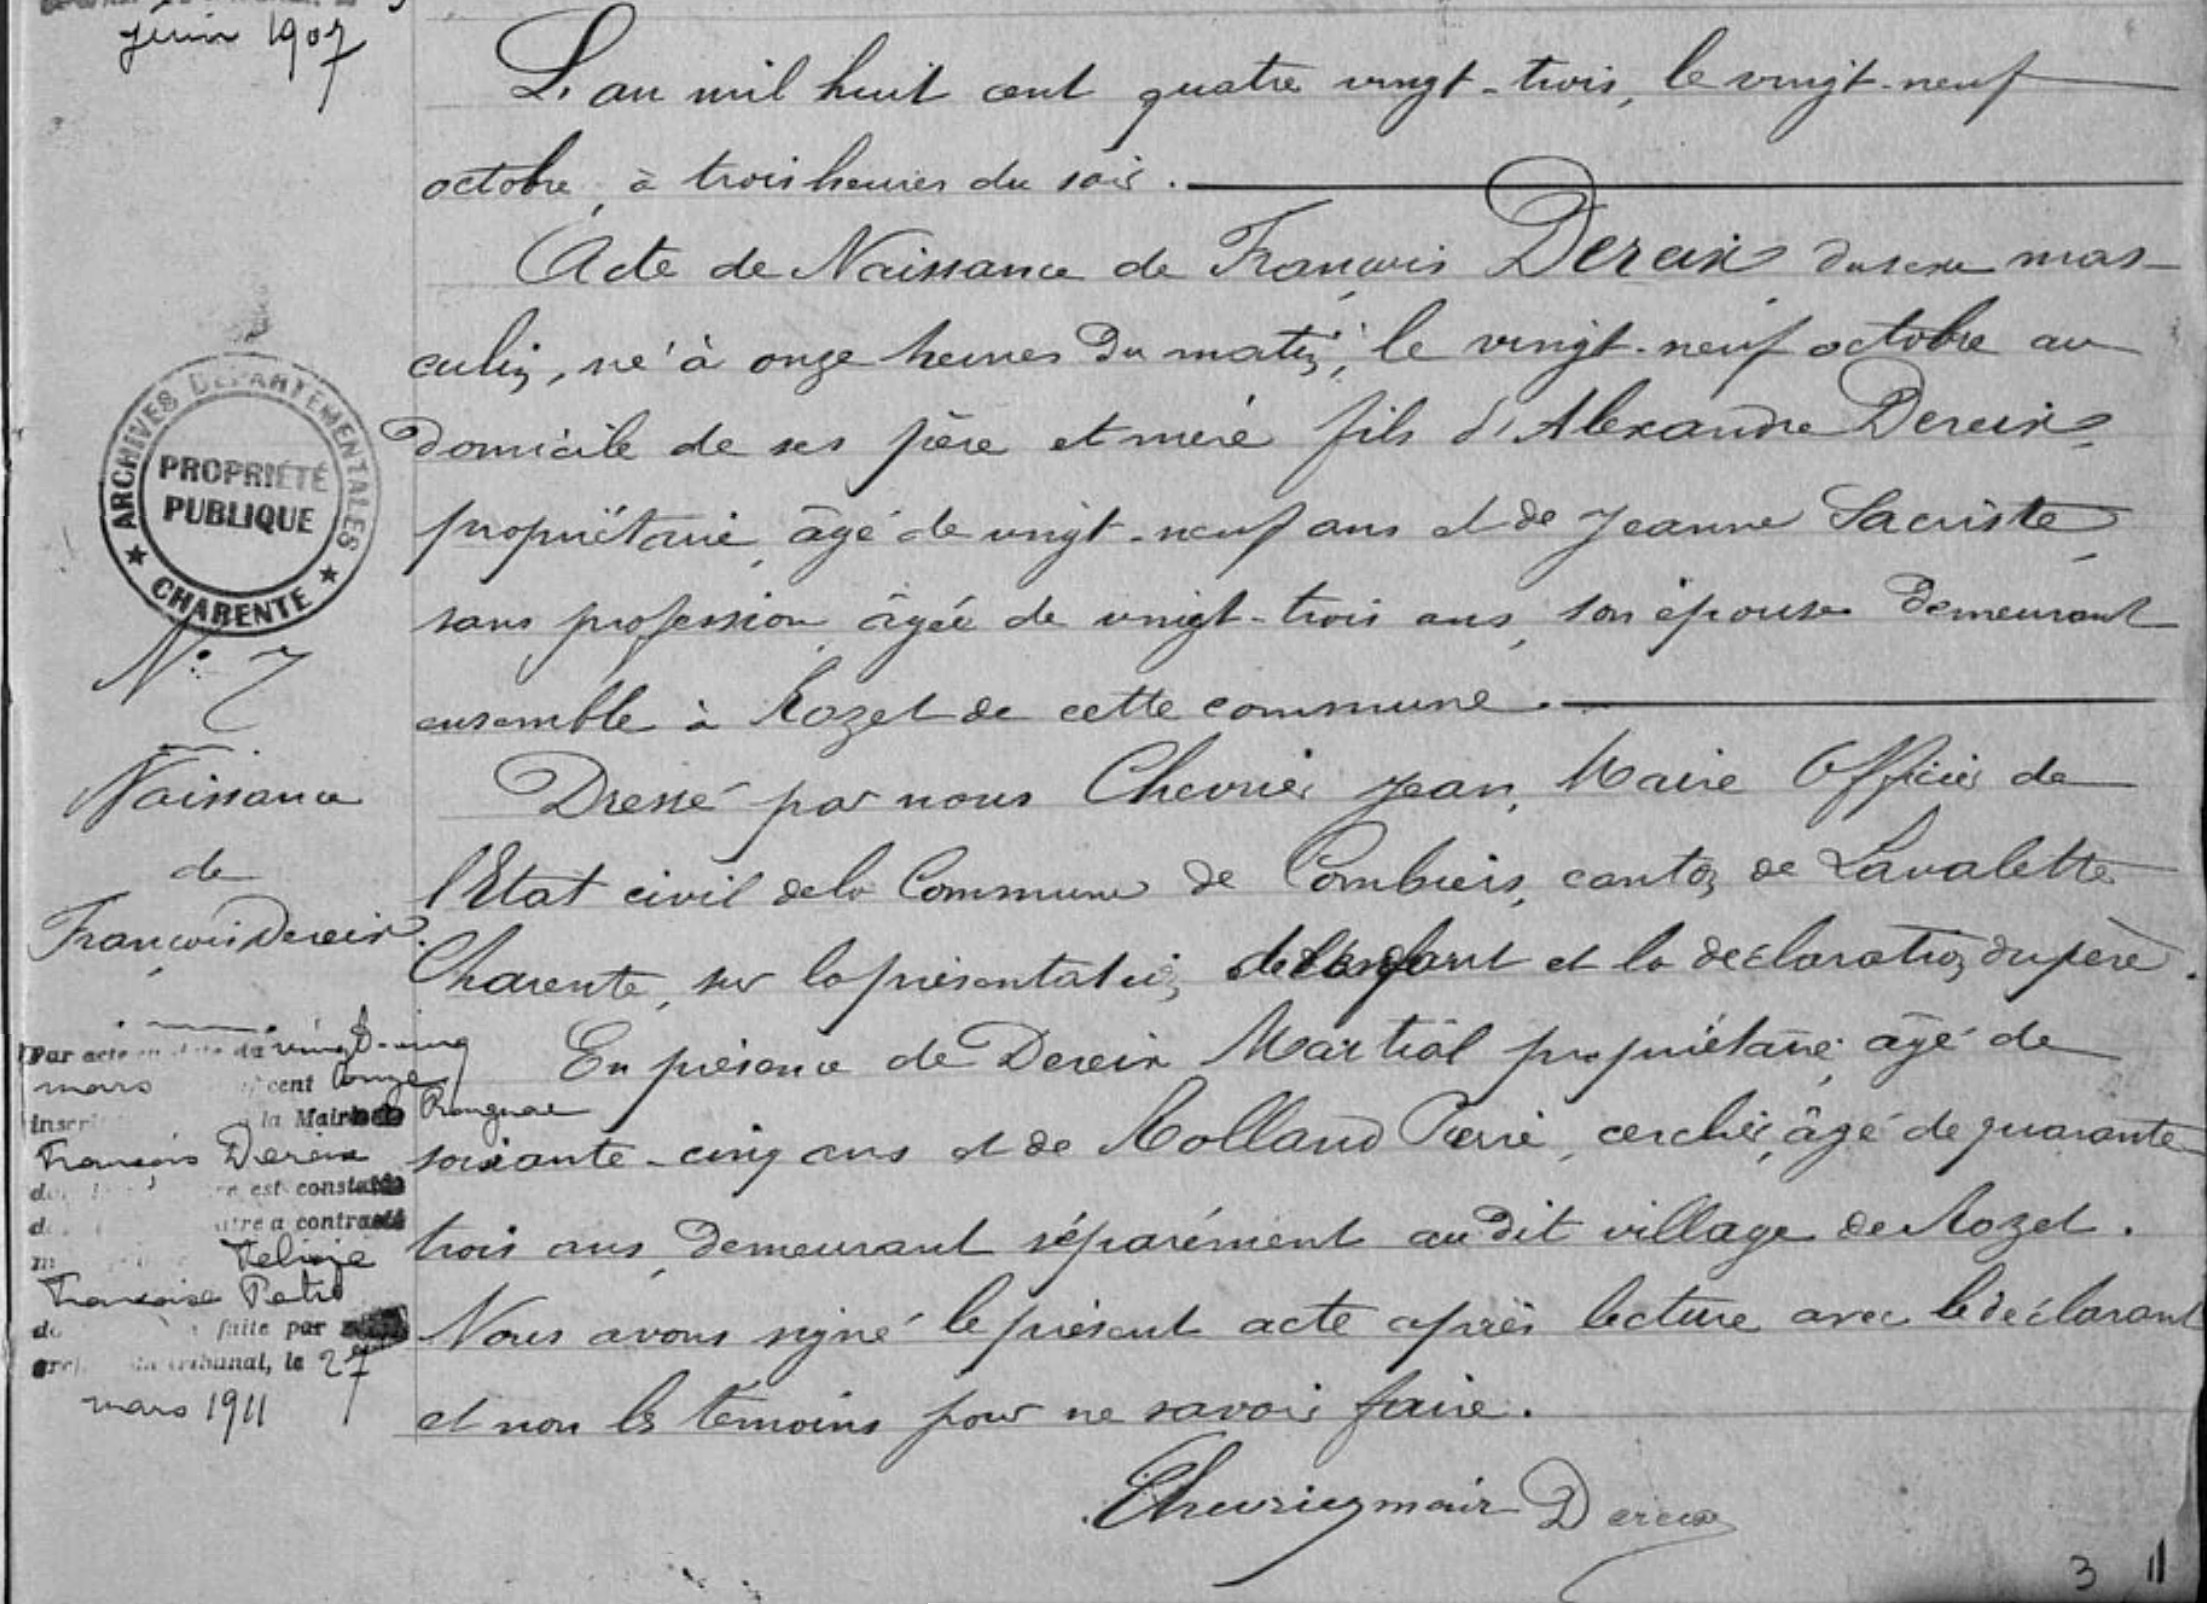 juin 1907
L'an mil huit cent quatre vingt-trois, le vingt-neuf
octobre, à trois heures du soir.
Acte de Naissance de François Dereix du sexe mas-
culin, né à onze heures du matin, le vingt-neuf octobre au
domicile de ses père et mère fils d'Alexandre Dereix,
propriétaire, âgé de vingt-neuf ans et de Jeanne Sacriste,
sans profession âgée de vingt-trois ans, son épouse demeurant
ensemble à Rozet de cette commune.
Dressé par nous Chevrier Jean, Maire Officier de
l'Etat civil de la Commune de Combiers, canton de Lavalette
Charente, sur la présentation de l'enfant et la déclaration du père.
En présence de Dereix Martial propriétaire, âgé de
soixante-cinq ans et de Rolland Pierre, cerclier, âgé de quarante
trois ans, demeurant séparément au dit village de Rozet.
Nous avons signé le présent acte après lecture avec le déclarant
et non les témoins pour ne savoir faire.
Chevrier maire Dereix
ARCHIVES DÉPARTEMENTALES
PROPRIÉTÉ
PUBLIQUE
★ CHARENTE ★
N° 7
Naissance
de
François Dereix.
Par acte en date du vingt-cinq
mars cent onze
la Mairie de Rougnac
François Dereix
est constaté
contracté
Françoise Petit
faite par
tribunal, le 27
mars 1911
3 11